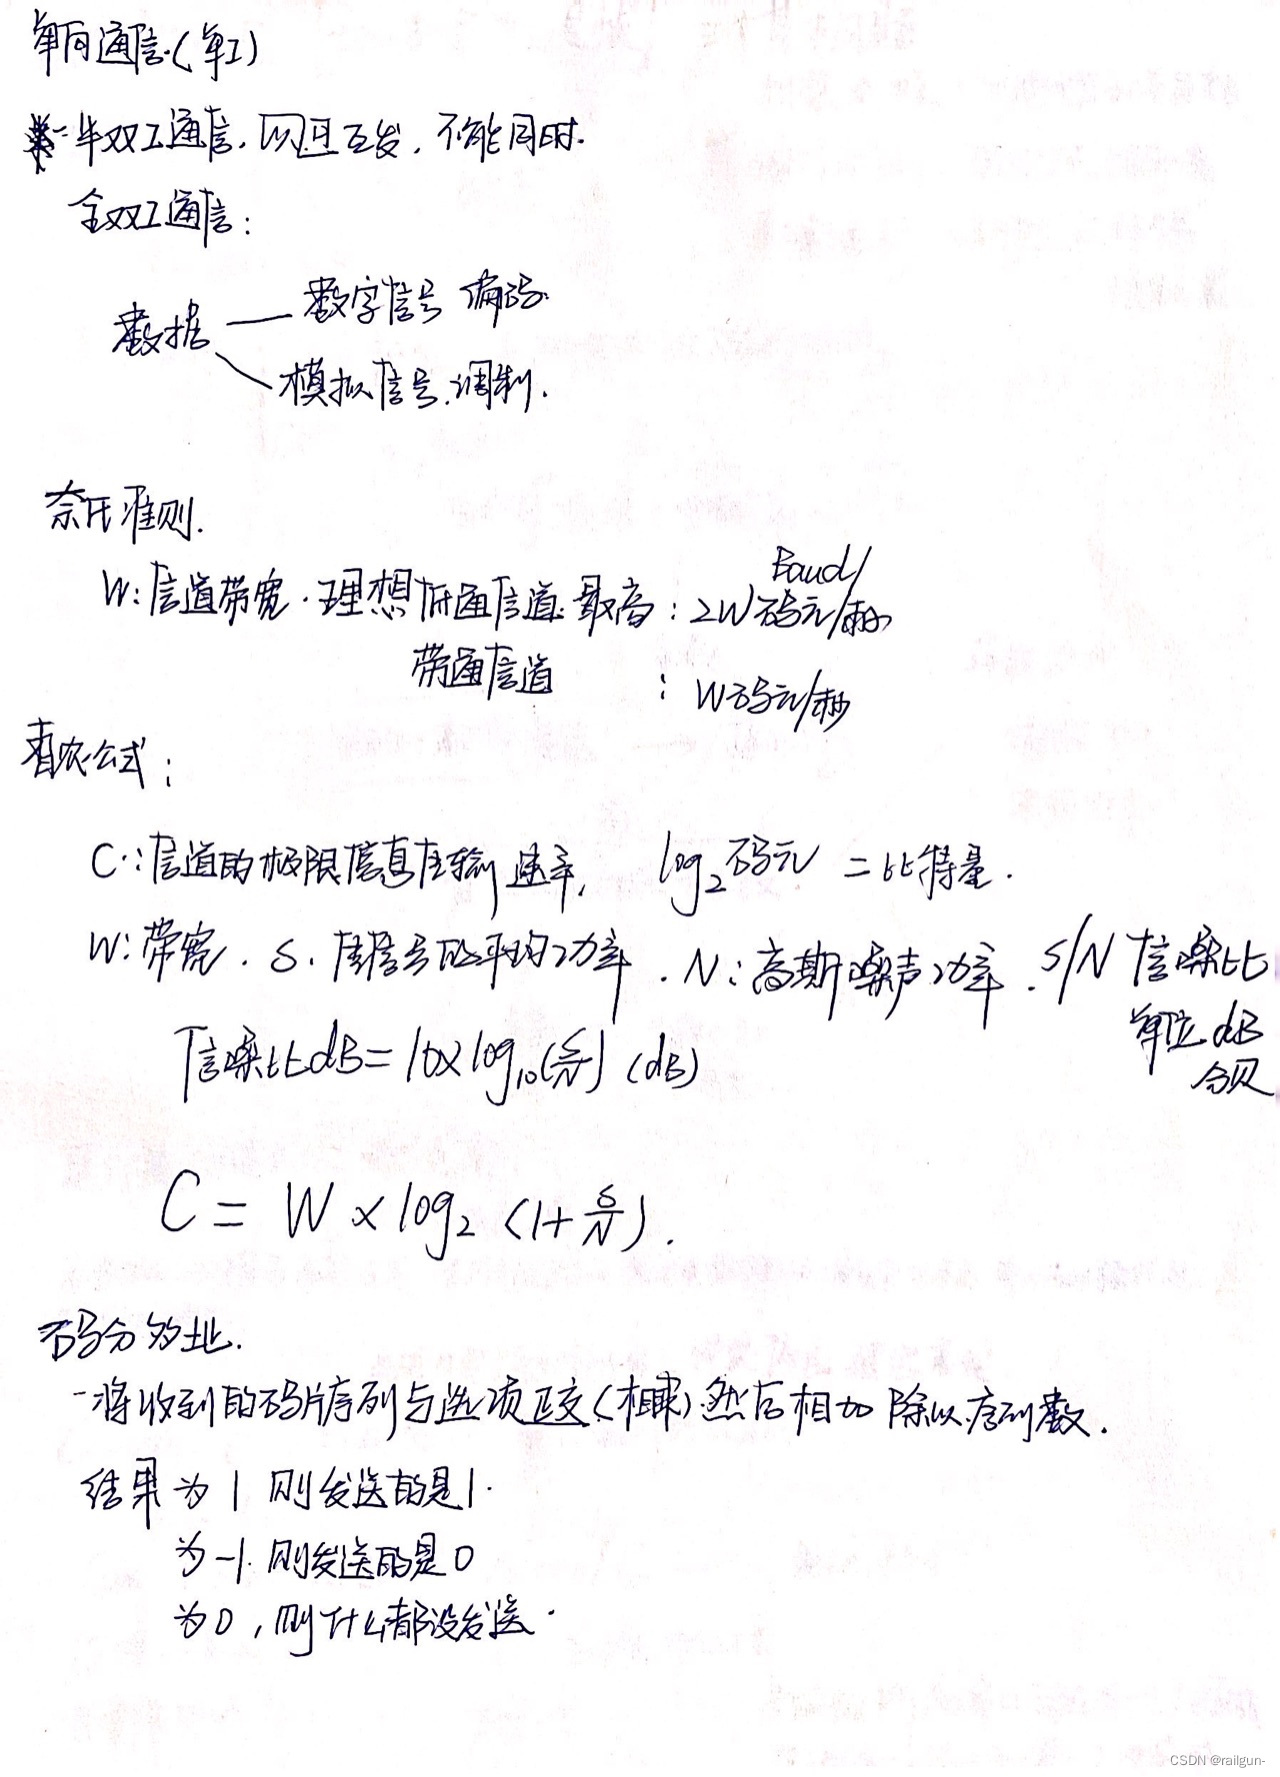 单向通信.(单工)
半双工通信. 可互发. 不能同时.
全双工通信:
数据 数字信号 编码.
模拟信号.调制.
奈氏准则.
Baud/
W:信道带宽. 理想低通信道.最高: 2W码元/秒
带通信道 : W码元/秒
香农公式:
C:信道的极限信息传输速率, log₂码元 = 比特量.
W:带宽. S.信号的平均功率. N:高斯噪声功率. S/N 信噪比
单位dB
分贝
信噪比dB=10×log₁₀(S/N) (dB)
C = W × log₂ (1+S/N).
码分多址.
-将收到的码片序列与选项正交(相乘)然后相加 除以序列数.
结果为1 则发送的是1.
为-1. 则发送的是0
为0, 则什么都没发送.
CSDN @railgun-